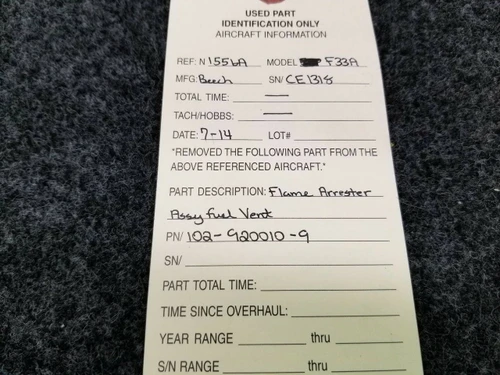 USED PART
IDENTIFICATION ONLY
AIRCRAFT INFORMATION
REF: N 1556A MODEL F33A
MFG. Beech SN/ CE1318
TOTAL TIME: —
TACH/HOBBS: —
DATE: 7-14 LOT#
"REMOVED THE FOLLOWING PART FROM THE
ABOVE REFERENCED AIRCRAFT."
PART DESCRIPTION: Flame Arrester
Assy fuel Vent
PN/ 102-920010-9
SN/
PART TOTAL TIME:
TIME SINCE OVERHAUL:
YEAR RANGE thru
S/N RANGE thru